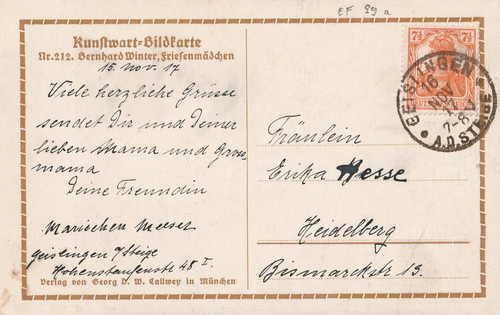 EF 99 a
Kunstwart-Bildkarte
Nr. 212. Bernhard Winter, Friesenmädchen
15. Nov. 17
Viele herzliche Grüsse
sendet Dir und Deiner
lieben Mama und Gross
mama
Deine Freundin
Mariechen
Geislingen / Steige
Hohenstaufenstr 48 I.
Verlag von Georg D. W. Callwey in München
7½ 7½
GEISLINGEN
16
NOV
7-8
A.D. STEIGE
Fräulein
Erika Hesse
Heidelberg
Bismarckstr 13.